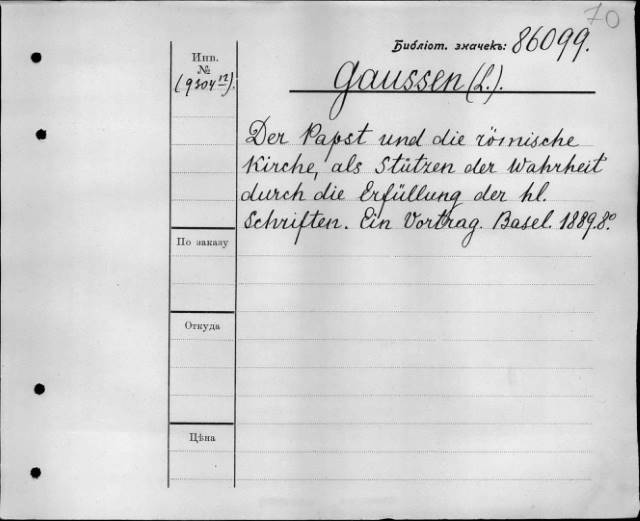 70
Библіот. значекъ: 86099.
Инв.
№
(9304 12).
Gaussen (L.).
Der Papst und die römische
Kirche, als Stützen der Wahrheit
durch die Erfüllung der hl.
Schriften. Ein Vortrag. Basel. 1889. 8º
По заказу
Откуда
Цѣна